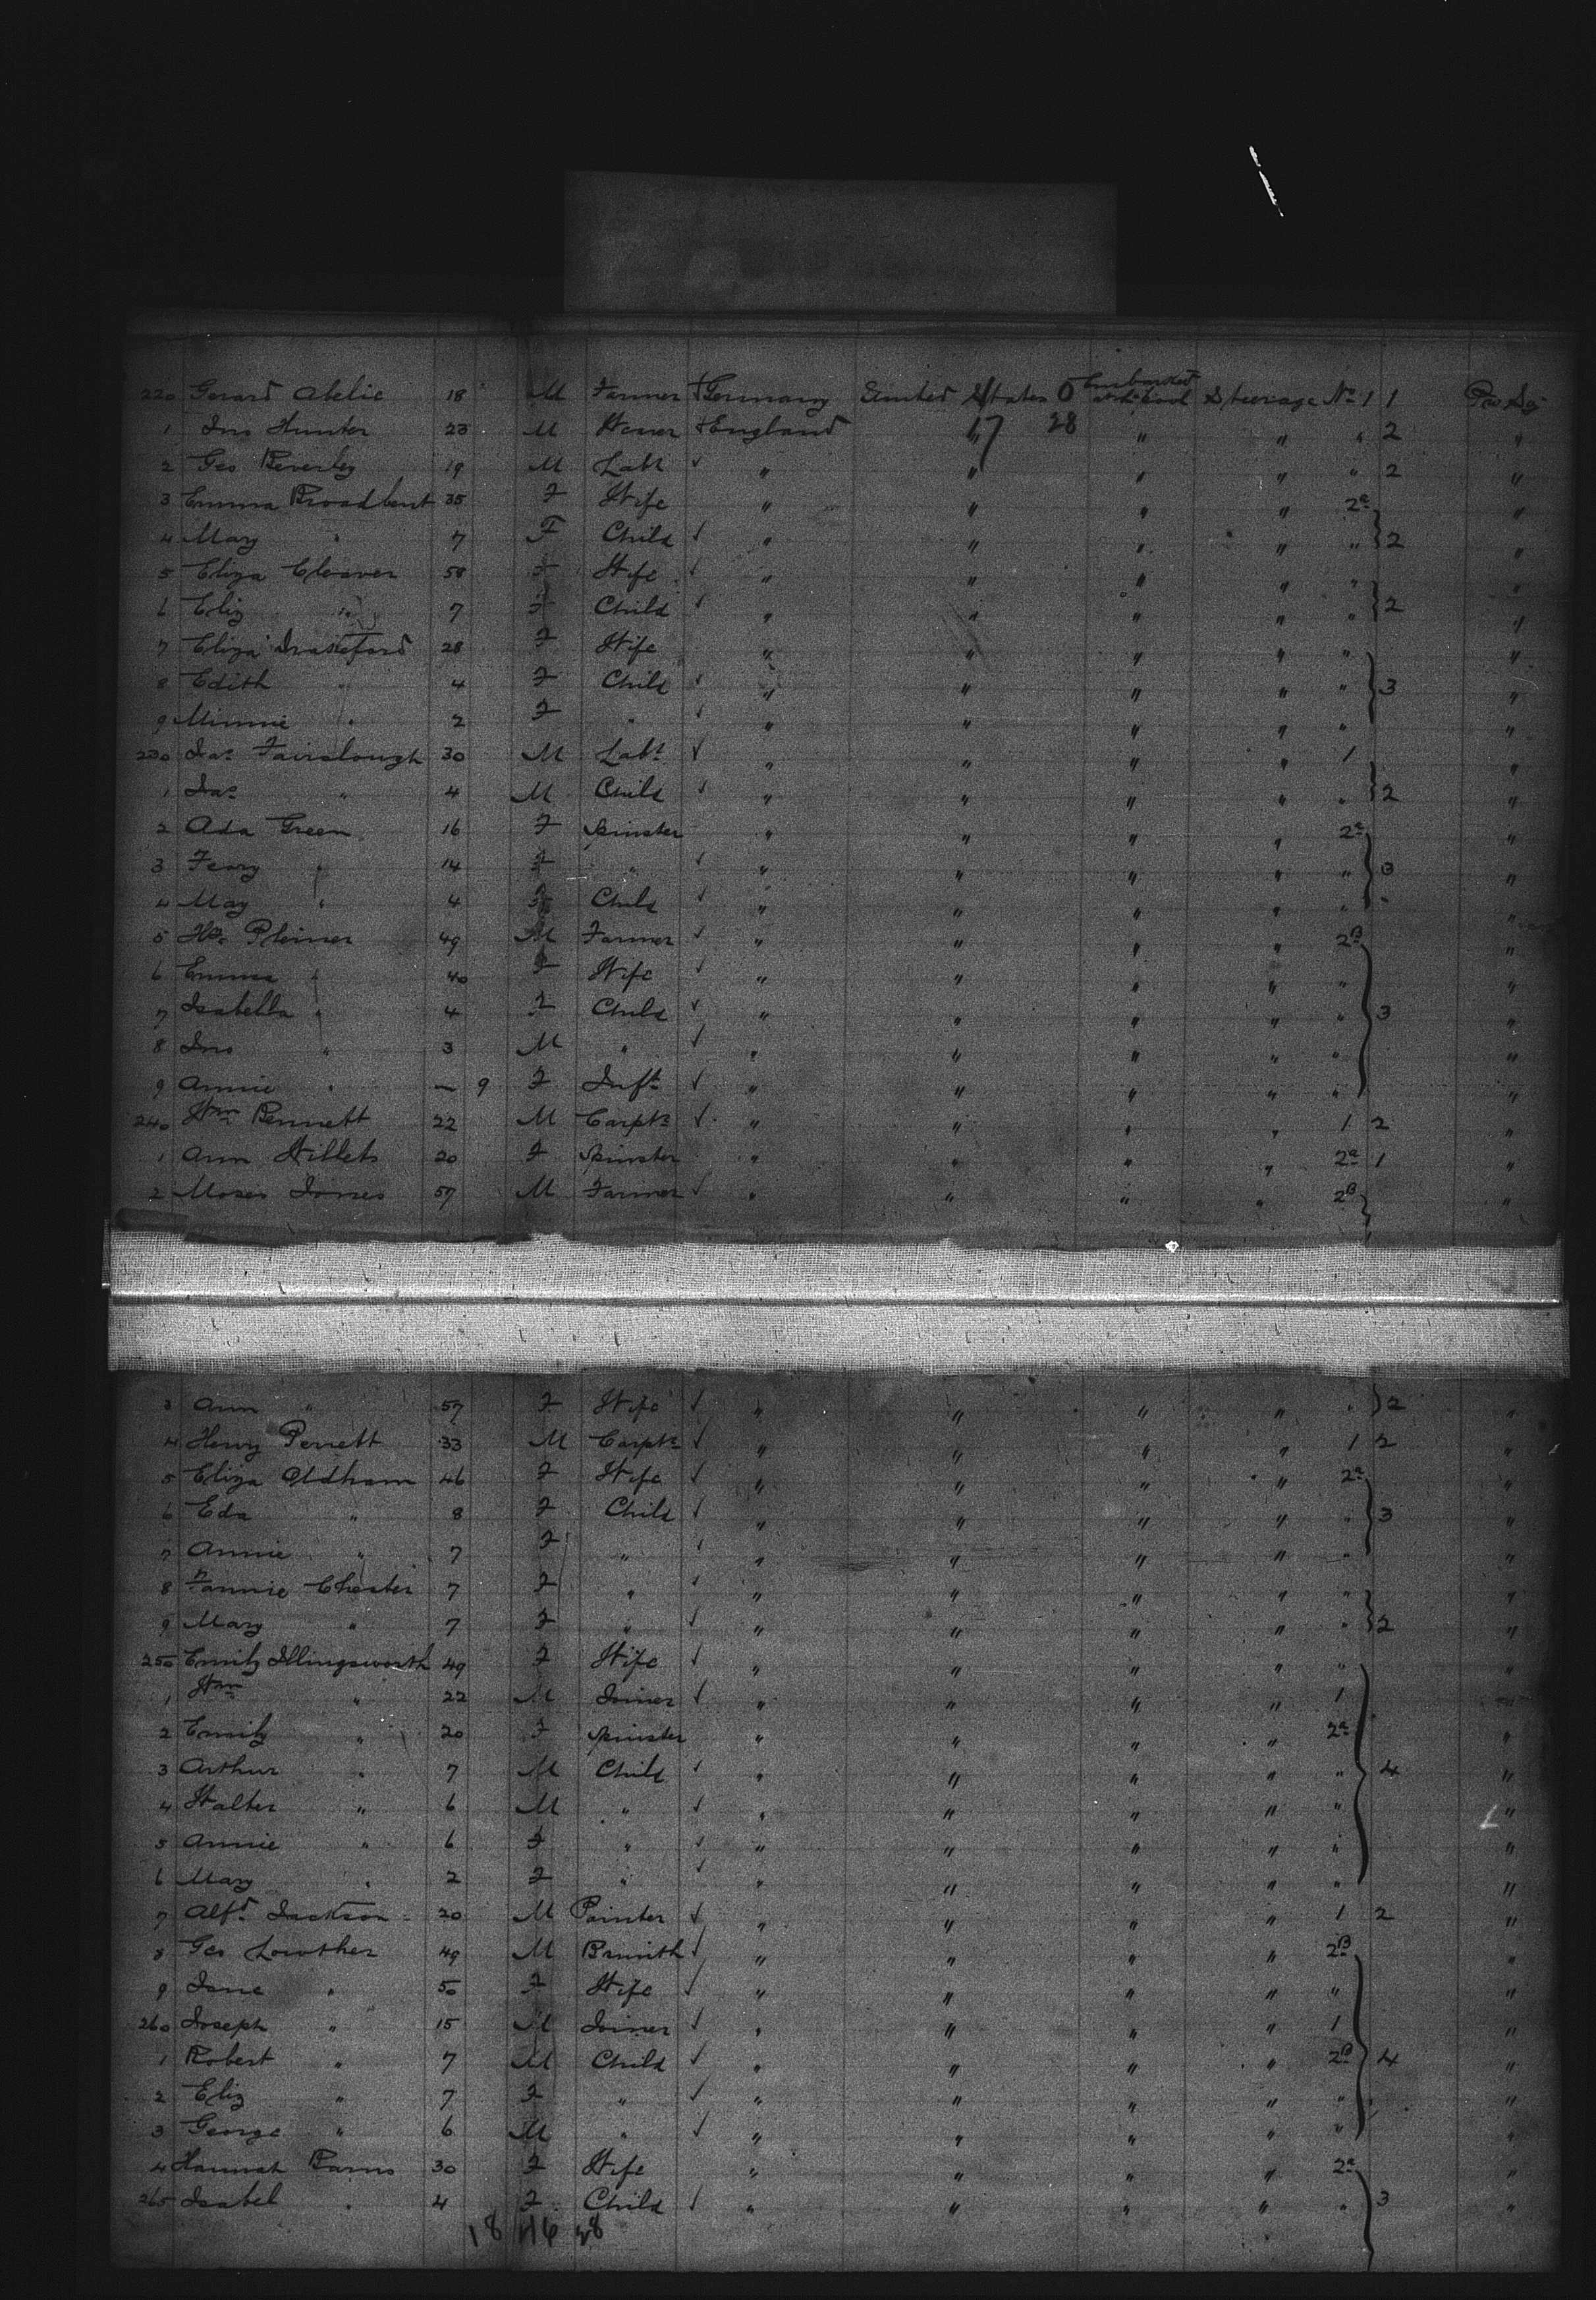 220 Gerard Abelie 18 M Farmer Germany United States 0 Embarked at L'pool Steerage No 1 1
1 Jno Hunter 23 M England 17 28 " " " 2 "
2 Geo Beverley 19 M Labr ✓ " " " " " 2 "
3 Emma Broadbent 35 F Wife " " " " 2a "
4 May " 7 F Child ✓ " " " " " } 2 "
5 Eliza Cleaver 58 F Wife ✓ " " " " " "
6 Eliz " 7 F Child ✓ " " " " " } 2 "
7 Eliza 28 F Wife " " " " " "
8 Edith " 4 F Child ✓ " " " " " } 3 "
9 Minnie " 2 F " ✓ " " " " " "
230 Jas Fairclough 30 M Labr ✓ " " " " 1 "
1 Jas " 4 M Child ✓ " " " " " } 2 "
2 Ada Green 16 F Spinster " " " " 2a "
3 " 14 F " ✓ " " " " " } 3 "
4 May " 4 F Child ✓ " " " " " "
5 49 M Farmer ✓ " " " " 2B "
6 Emma " 40 F Wife ✓ " " " " " "
7 Isabella " 4 F Child ✓ " " " " " } 3 "
8 Jno " 3 M " ✓ " " " " " "
9 Annie " — 9 F Inft ✓ " " " " " "
240 Wm Bennett 22 M Carptr ✓ " " " " 1 2 "
1 Ann Willets 20 F Spinster " " " " 2a 1 "
2 Moses Jones 57 M Farmer ✓ " " " " 2B "
3 Ann " 57 F Wife ✓ " " " " " } 2 "
4 Henry Perrett 33 M Carptr ✓ " " " " 1 2 "
5 Eliza Oldham 46 F Wife ✓ " " " " 2a "
6 Eda " 8 F Child ✓ " " " " " } 3 "
7 Annie " 7 F " ✓ " " " " " "
8 Fannie Chester 7 F " ✓ " " " " " "
9 Mary " 7 F " ✓ " " " " " } 2 "
250 Emily Illingsworth 49 F Wife ✓ " " " " " "
1 Wm " 22 M Joiner ✓ " " " " 1 "
2 Emily " 20 F Spinster " " " " 2a "
3 Arthur " 7 M Child ✓ " " " " " } 4 "
4 Walter " 6 M " ✓ " " " " " "
5 Annie " 6 F " ✓ " " " " " "
6 Mary " 2 F " ✓ " " " " " "
7 Alfd Jackson 20 M Painter ✓ " " " " 1 2 "
8 Geo Lowther 49 M Bsmith ✓ " " " " 2B "
9 Jane " 50 F Wife ✓ " " " " " "
260 Joseph " 15 M Joiner ✓ " " " " 1 "
1 Robert " 7 M Child ✓ " " " " 2B } 4 "
2 Eliz " 7 F " ✓ " " " " " "
3 George " 6 M " ✓ " " " " " "
4 Hannah Barns 30 F Wife " " " " 2a "
265 Isabel " 4 F Child ✓ " " " " " } 3 "
18 28